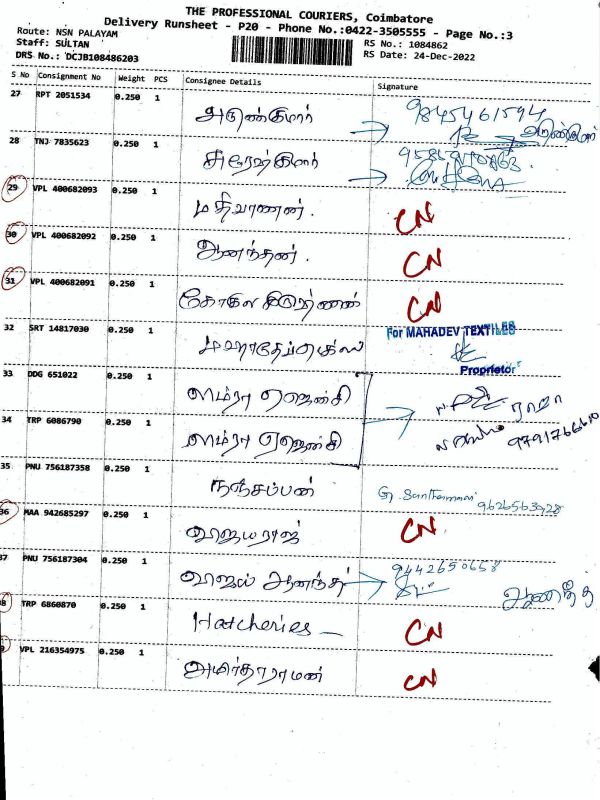 THE PROFESSIONAL COURIERS, Coimbatore
Delivery Runsheet - P20 - Phone No.:0422-3505555 - Page No.:3
Route: NSN PALAYAM
RS No.: 1084862
Staff: SULTAN
RS Date: 24-Dec-2022
DRS No.: DCJB108486203
S No Consignment No Weight PCS Consignee Details Signature
27 RPT 2051534 0.250 1 அருண்குமார் 9845461594
28 TNJ 7835623 0.250 1 சுரேஷ்குமார்
29 VPL 400682093 0.250 1 மதிவாணன். CN
30 VPL 400682092 0.250 1 ஆனந்தன். CN
31 VPL 400682091 0.250 1 CN
32 SRT 14817030 0.250 1
For MAHADEV TEXTILES
Proprietor
33 DDG 651022 0.250 1 ஏஜென்சி ராஜா
34 TRP 6086790 0.250 1 ஏஜென்சி 9791766610
35 PNU 756187358 0.250 1 நஞ்சப்பன் 9626563928
36 MAA 942685297 0.250 1 விஜயராஜ் CN
37 PNU 756187304 0.250 1 விஜய் ஆனந்த் 9442650658
38 TRP 6860870 0.250 1 Hatcheries CN
VPL 216354975 0.250 1 அமிர்தாராமன் CN